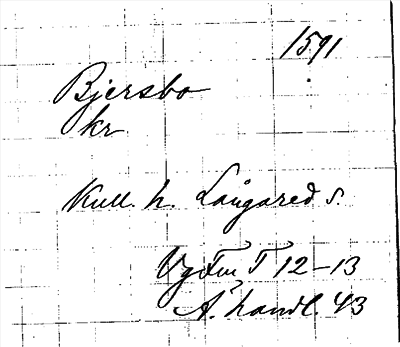 1591
Bjersbo
kr
Kull. h. Långared s.
Vg Fm T 12-13
Ä. handl. 43